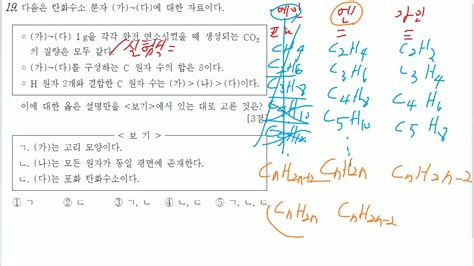 19. 다음은 탄화수소 분자 (가)~(다)에 대한 자료이다.
○ (가)~(다) 1g을 각각 완전 연소시켰을 때 생성되는 CO2
의 질량은 모두 같다.
실험식=
○ (가)~(다)를 구성하는 C 원자 수의 합은 9이다.
○ H 원자 2개와 결합한 C 원자 수는 (가)>(나)>(다)이다.
이에 대한 옳은 설명만을 <보기>에서 있는 대로 고른 것은?
[3점]
< 보 기 >
ㄱ. (가)는 고리 모양이다.
ㄴ. (나)는 모든 원자가 동일 평면에 존재한다.
ㄷ. (다)는 포화 탄화수소이다.
① ㄱ ② ㄷ ③ ㄱ, ㄴ ④ ㄴ, ㄷ ⑤ ㄱ, ㄴ, ㄷ
에인 엔 가인
CH4 C2H4 C2H2
C2H6 C3H6 C3H4
C3H8 C4H8 C4H6
C5H10 C5H8
CnH2n+2 CnH2n CnH2n-2
CnH2n CnH2n-2